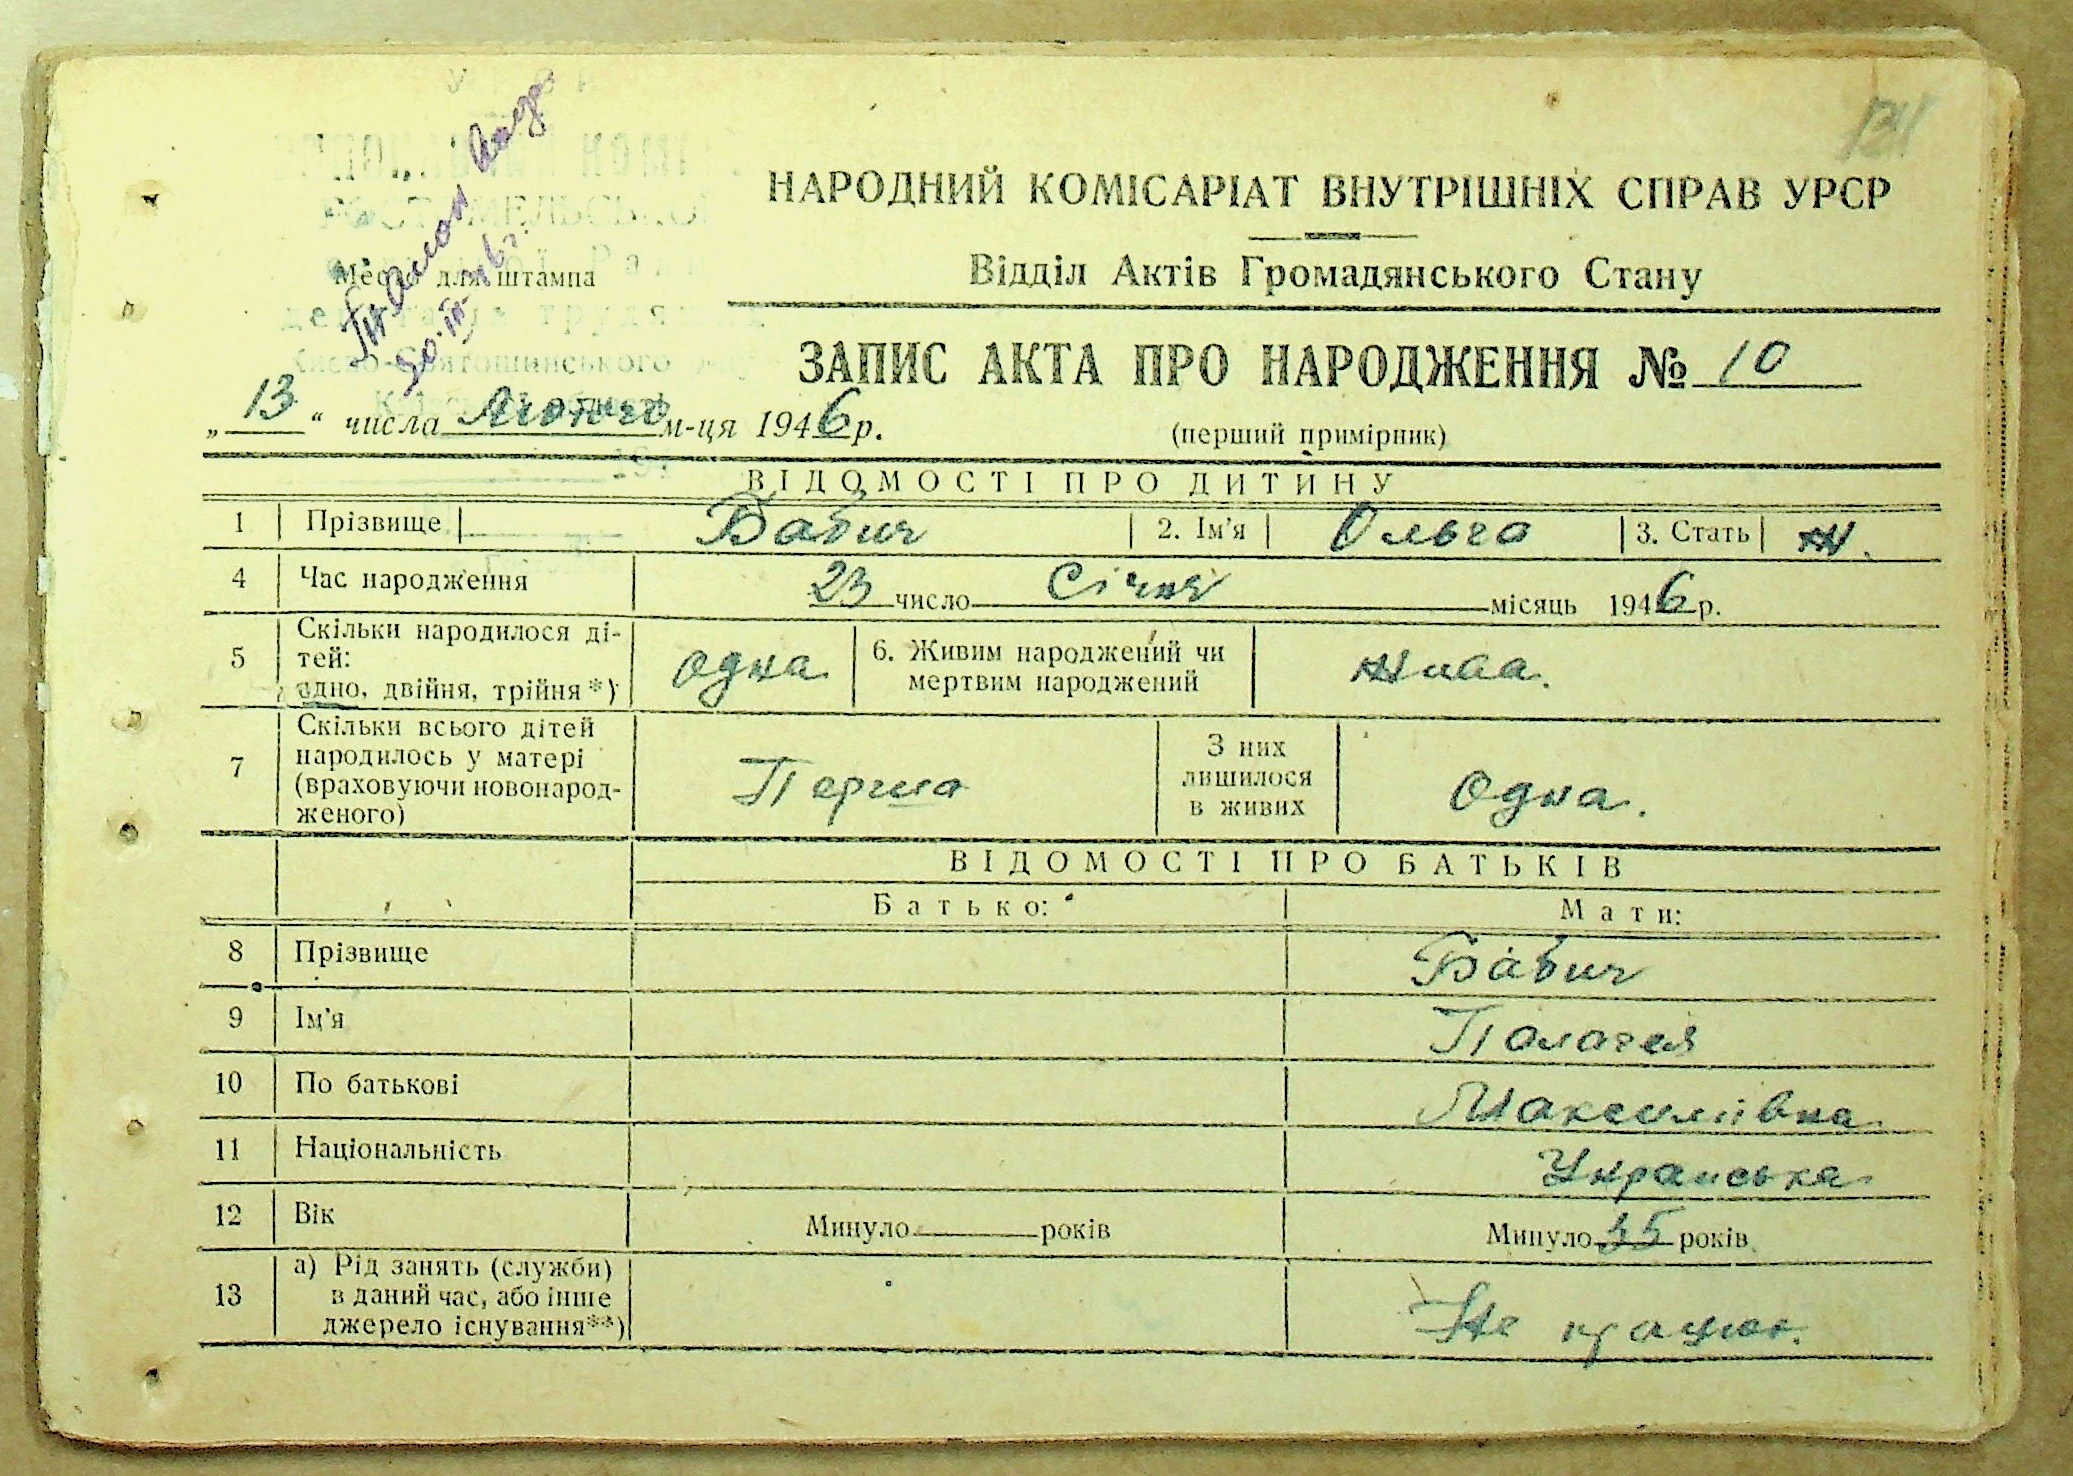 НАРОДНИЙ КОМІСАРІАТ ВНУТРІШНІХ СПРАВ УРСР
Відділ Актів Громадянського Стану
Місце для штампа
ЗАПИС АКТА ПРО НАРОДЖЕННЯ № 10
„13“ числа Лютого м-ця 1946 р.
(перший примірник)
ВІДОМОСТІ ПРО ДИТИНУ
1 Прізвище Бабич 2. Ім'я Ольга 3. Стать Ж.
4 Час народження 23 число Січня місяць 1946 р.
5 Скільки народилося ді-
тей:
одно, двійня, трійня*)
одна
6. Живим народжений чи
мертвим народжений
жива.
7 Скільки всього дітей
народилось у матері
(враховуючи новонарод-
женого)
Перша
З них
лишилося
в живих
Одна.
ВІДОМОСТІ ПРО БАТЬКІВ
Батько: Мати:
8 Прізвище Бабич
9 Ім'я Палагея
10 По батькові Максимівна
11 Національність Українська
12 Вік Минуло років Минуло 35 років
13 а) Рід занять (служби)
в даний час, або інше
джерело існування**)
Не працює.